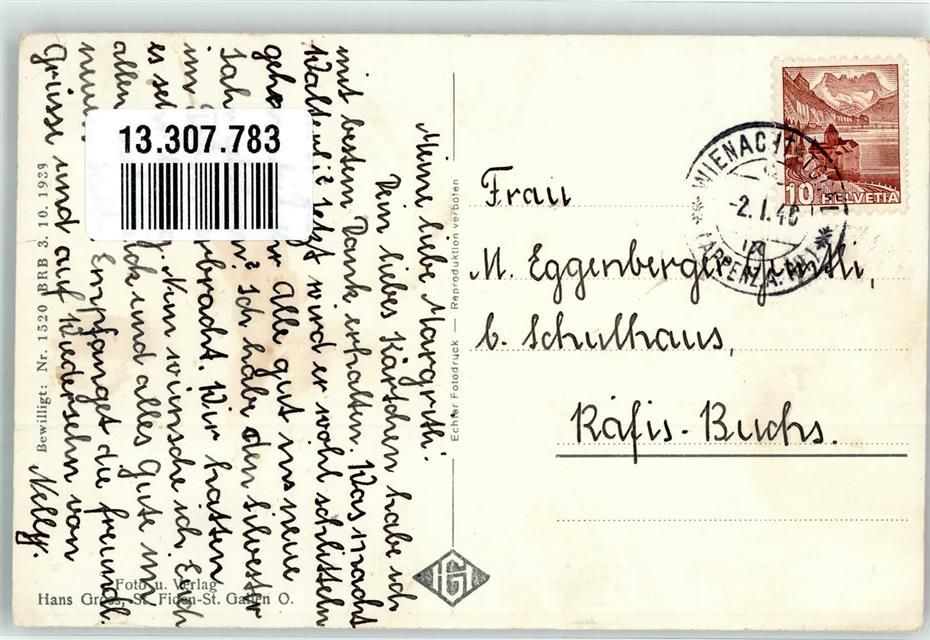 Meine liebe Margrith!
Dein liebes Kärtchen habe ich
mit bestem Dank erhalten. Was macht
Walterli? Jetzt wird er wohl schlitteln
Ihr Alle gut ins neue
Ich habe den Silvester
verbracht. Wir hatten
Nun wünsche ich Euch
allen und alles Gute im
neuen Empfanget die freundl.
Grüsse und auf Wiedersehn von
Nelly.
13.307.783
Bewilligt: Nr. 1520 BRB 3. 10. 1939
Foto u. Verlag
Hans Gross, St. Fiden-St. Gallen O.
Echter Fotodruck — Reproduktion verboten
HG
10 HELVETIA
WIENACHT-
-2.I.40
(APPENZ. A. RH.)
Frau
M. Eggenberger-
b. Schulhaus,
Räfis-Buchs.